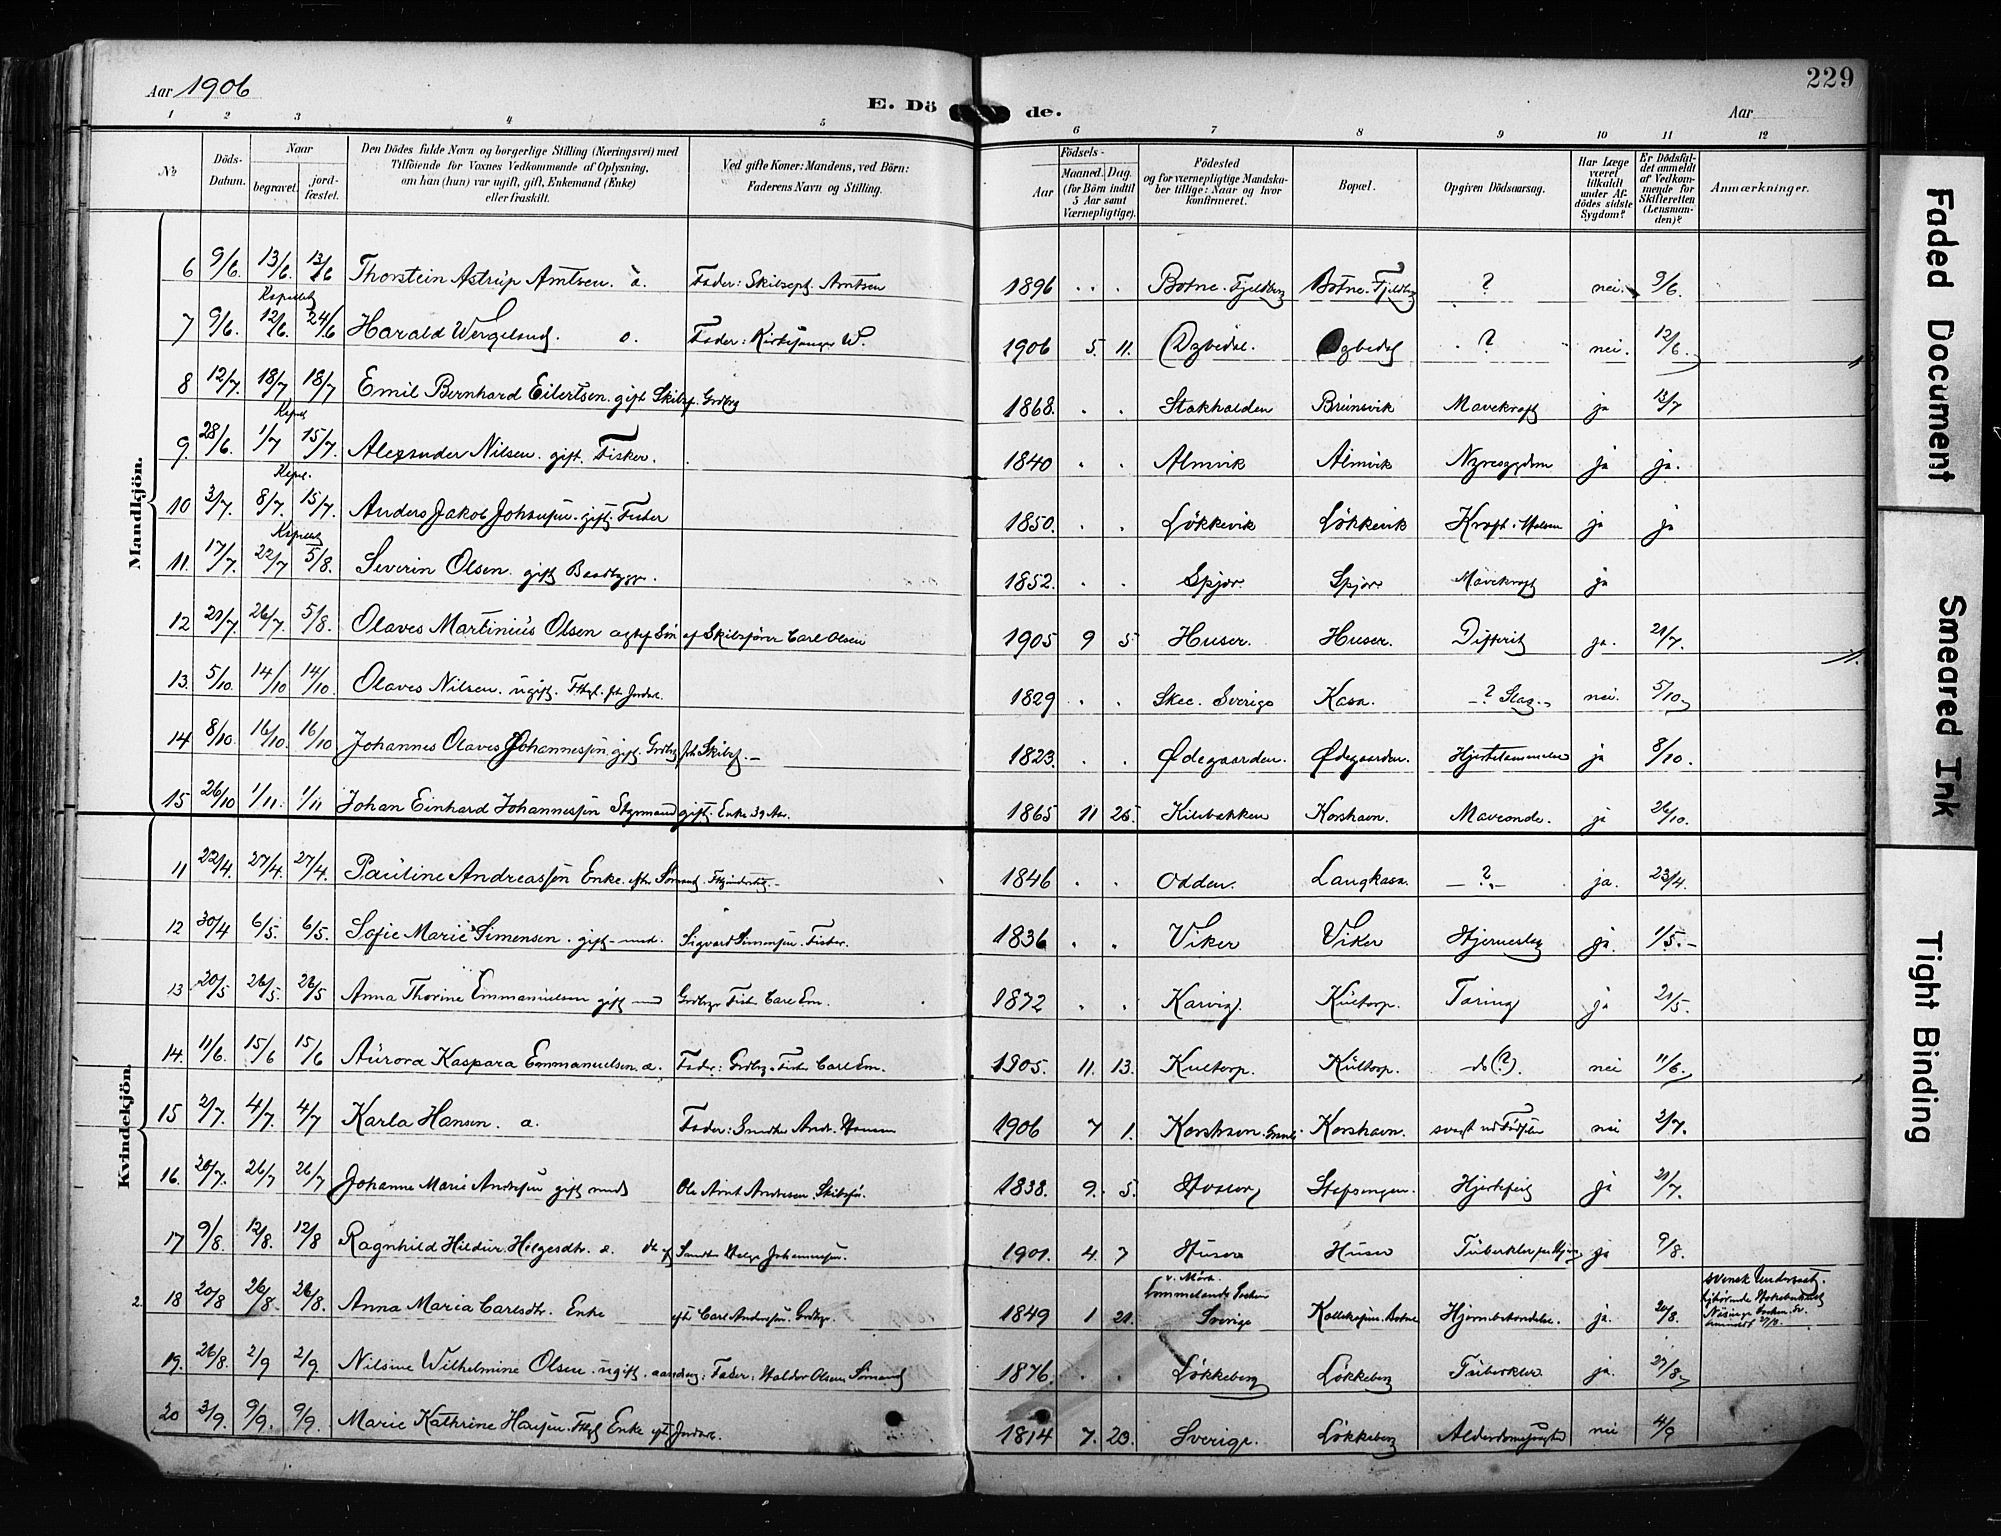 Aar 1906
E. Dö de.
229
Aar
1 2 3 4 5 6 7 8 9 10 11 12
№
Döds-Datum.
Naar
begravet.
jord-fæstet.
Den Dödes fulde Navn og borgerlige Stilling (Næringsvei) med
Tilföiende for Voxnes Vedkommende af Oplysning,
om han (hun) var ugift, gift, Enkemand (Enke)
eller fraskilt.
Ved gifte Koner: Mandens, ved Börn:
Faderens Navn og Stilling.
Födsels-
Aar
Maaned. Dag.
(for Börn indtil
5 Aar samt
Værnepligtige).
Födested
og for værnepligtige Mandska-
ber tillige: Naar og hvor
konfirmeret.
Bopæl.
Opgiven Dödsaarsag.
Har Læge
været
tilkaldt
under Af-
dödes sidste
Sygdom?
Er Dödsfal-
det anmeldt
af Vedkom-
mende for
Skifteretten
(Lensman-
den)?
Anmærkninger.
Mandkjön.
6 9/6. 13/6. 13/6 Thorstein Astrup Arntsen. a. Fader: Skibsept. Arntsen 1896 Botne. Fjeldberg Botne. Fjeldberg ? nei. 9/6.
Kapellet
7 9/6. 12/6. 24/6 Harald Wergeland. o. Fader: Kirkesanger W. 1906 5. 11. Dybedal. Dybedal ? nei. 12/6.
8 12/7. 18/7 18/7 Emil Bernhard Eilertsen. gift Skibsf. Grdbrg 1868. Stokhalden Brunsvik Mavekræft ja 13/7
Kapel
9. 28/6. 1/7 15/7. Alexander Nilsen. gift. Fisker. 1840 Almvik Almvik Nyresygdom ja ja.
Kapel.
10 3/7. 8/7. 15/7. Anders Jakob Johansen. gift. Fisker 1850. Løkkevik Løkkevik Kræft i Halsen ja ja
Kapellet
11. 17/7. 22/7 5/8. Severin Olsen. gift Baadbygger. 1852. Spjær Spjær Mavekræft ja
12 21/7. 26/7. 5/8. Olaves Martinius Olsen ægtef Søn af Skibsfører Carl Olsen 1905 9 5 Huser. Huser. Difterit ja. 21/7.
13. 5/10. 14/10 14/10. Olaves Nilsen. ugift. 1829 Skee. Sverige Kasa. ? Slag. nei. 5/10
14 8/10. 16/10. 16/10 Johannes Olaves Johannessen gift. Grdbrg fh Skibsf. 1823. Ødegaarden. Ødegaarden. Hjertelammelse ja 8/10.
15 26/10 1/11. 1/11 Johan Einhard Johannessen Styrmand gift. Enke 39 Aar. 1865 11 25. Kilebakken Korshavn. Maveonde. ja 26/10.
Kvindekjön.
11 22/4. 27/4. 27/4. Pauline Andreassen Enke. efter Sømand. 1846 Odden. Langkasa. ? ja. 23/4.
12 30/4 6/5. 6/5. Sofie Marie Simensen. gift med. Sigvard Simensen. Fisker. 1836 Viker Viker Hjerneslag ja. 1/5.
13 20/5 26/5. 26/5 Anna Thorine Emmanuelsen gift med Grdbrg. Fisk. Carl Em. 1872 Karvig. Kultorp. Tæring ja 21/5.
14. 11/6. 15/6 15/6 Aurora Kaspara Emmanuelsen. a. Fader: Grdbrg. Fisker Carl Em. 1905. 11. 13. Kultorp. Kultorp. do (?). nei 11/6.
15 2/7. 4/7. 4/7 Karla Hansen. a. Fader: Smed Andr. Hansen 1906 7 1. Korshavn. Korshavn. svagt ved Fødselen nei 2/7.
16. 20/7. 26/7 26/7 Johanne Marie Andresen gift med Ole Arnt Andresen. Skibsfø. 1838. 9. 5. Stafsengen. Hjertefeil ja 21/7.
17 9/8. 12/8. 12/8 Ragnhild Hildur Helgesdtr. a. dtr af Smed Helge Johannessen. 1901. 4. 7 Huser Huser Tuberkler paa Hjernen ja 9/8.
2. 18 20/8 26/8. 26/8. Anna Maria Carlsdtr. Enke eft. Carl Andersen. Grdbrg. 1849 1 21. Lommelands Sogn Sverige Hjernebetændelse. ja. 20/8. svensk Undersaat.
19. 26/8. 2/9 2/9. Nilsine Wilhelmine Olsen. ugift. Fader: Haldor Olsen Sømand 1876. Løkkeberg Løkkeberg Tuberkler ja. 27/8
20 3/9. 9/9. 9/9. Marie Kathrine Hansen. Enke eft. Jordarb. 1814 7. 23. Sverige. Løkkeberg Alderdomssvaghed nei 4/9
Faded Document
Smeared Ink
Tight Binding